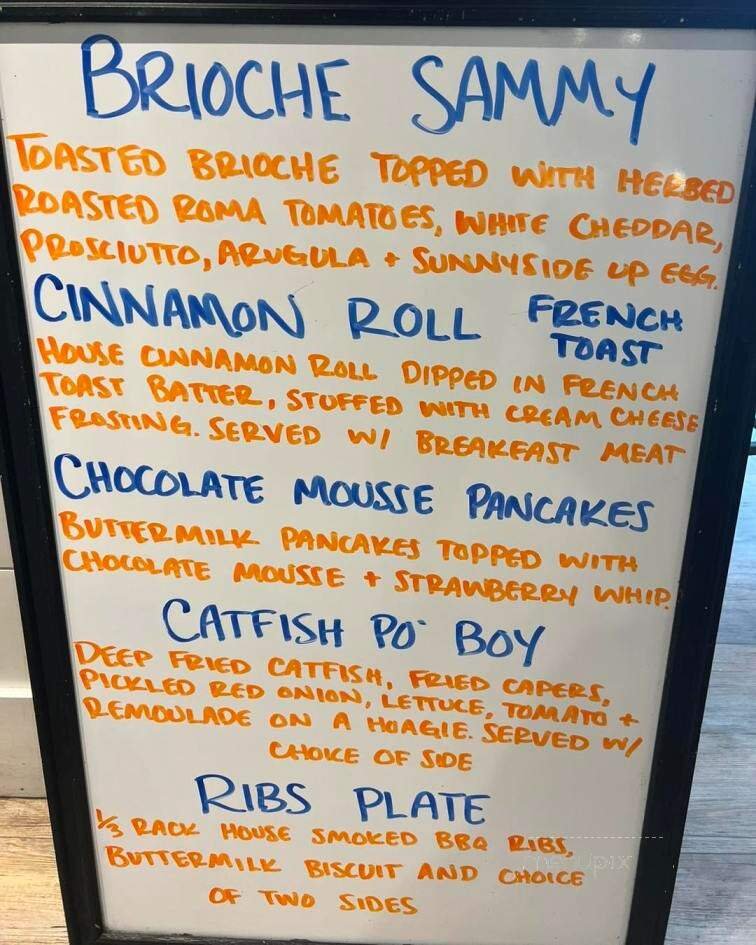 BRIOCHE SAMMY
TOASTED BRIOCHE TOPPED WITH HERBED
ROASTED ROMA TOMATOES, WHITE CHEDDAR,
PROSCIUTTO, ARUGULA + SUNNYSIDE UP EGG.
CINNAMON ROLL FRENCH
TOAST
HOUSE CINNAMON ROLL DIPPED IN FRENCH
TOAST BATTER, STUFFED WITH CREAM CHEESE
FROSTING. SERVED W/ BREAKFAST MEAT
CHOCOLATE MOUSSE PANCAKES
BUTTERMILK PANCAKES TOPPED WITH
CHOCOLATE MOUSSE + STRAWBERRY WHIP.
CATFISH PO' BOY
DEEP FRIED CATFISH, FRIED CAPERS,
PICKLED RED ONION, LETTUCE, TOMATO +
REMOULADE ON A HOAGIE. SERVED W/
CHOICE OF SIDE
RIBS PLATE
1/3 RACK HOUSE SMOKED BBQ RIBS,
BUTTERMILK BISCUIT AND CHOICE
OF TWO SIDES
menupix